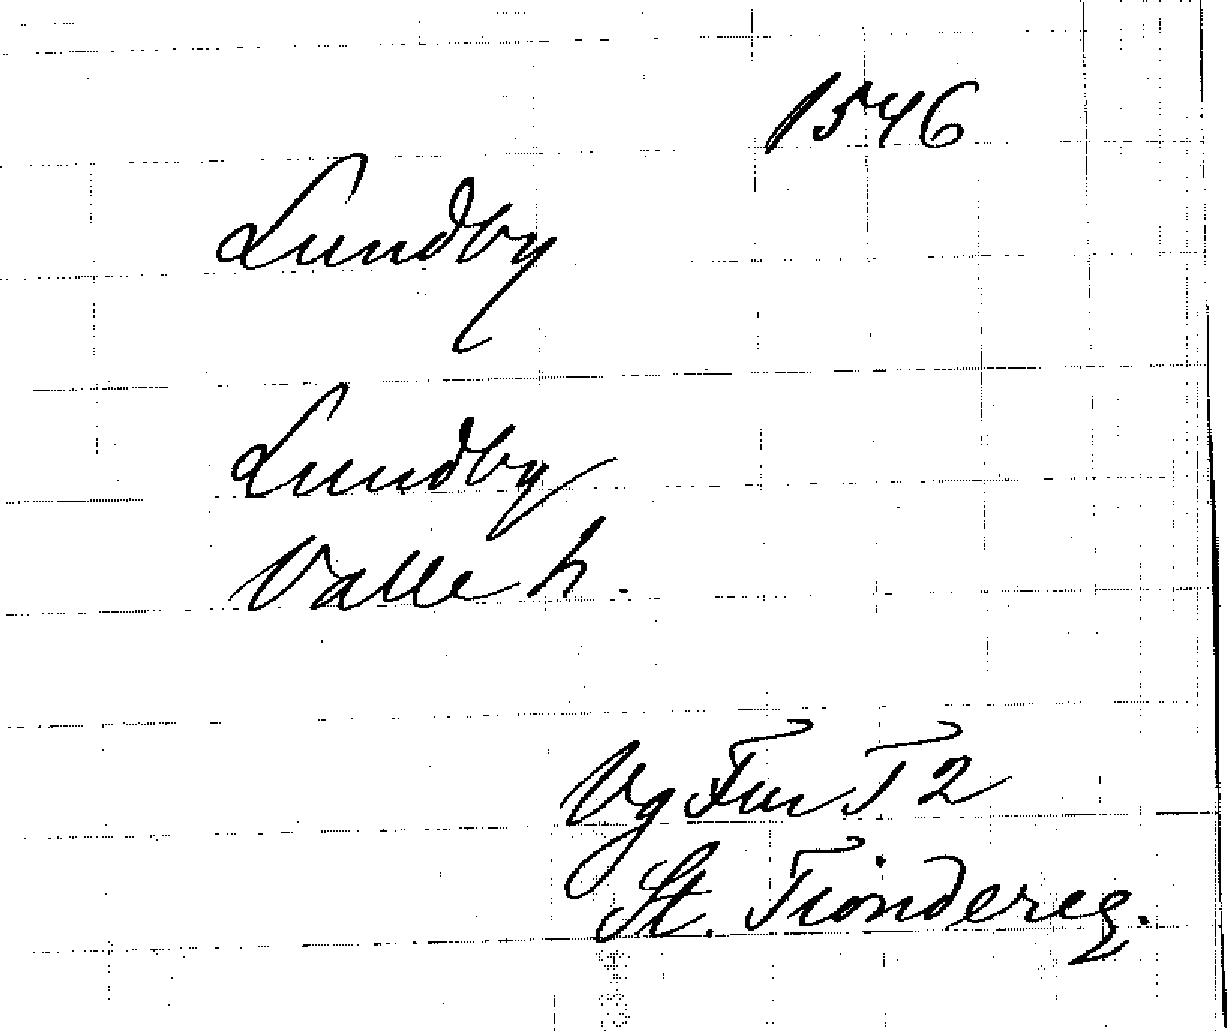 1546
Lundby
Lundby
Valle h.
Vg Fur T 2
St. Tiondereg.